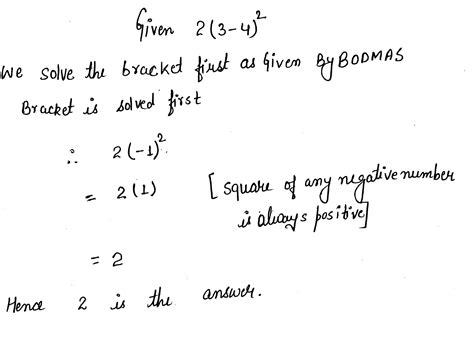 Given 2(3-4)²
We solve the bracket first as Given By BODMAS
Bracket is solved first
∴ 2(-1)²
= 2(1) [square of any negative number
is always positive]
= 2
Hence 2 is the answer.